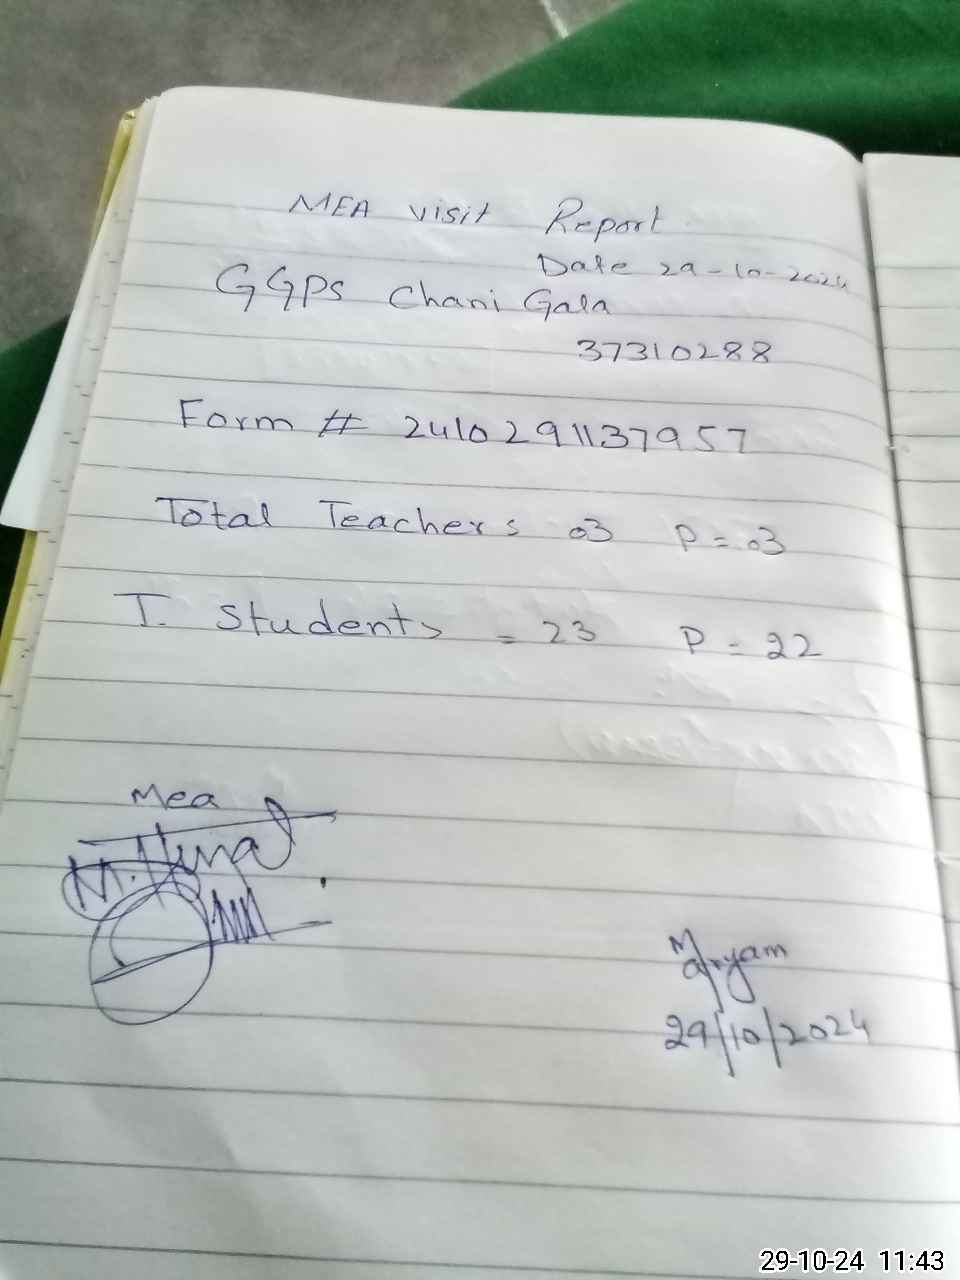 MEA visit Report
Date 29-10-2024
GGPS Chani Gala
37310288
Form # 2410291137957
Total Teachers 03 P = 03
T. Students = 23 P = 22
Mea
Maryam
29/10/2024
29-10-24 11:43